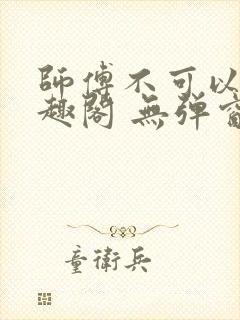 師傅不可以
趣閣 無彈窗
童衛兵